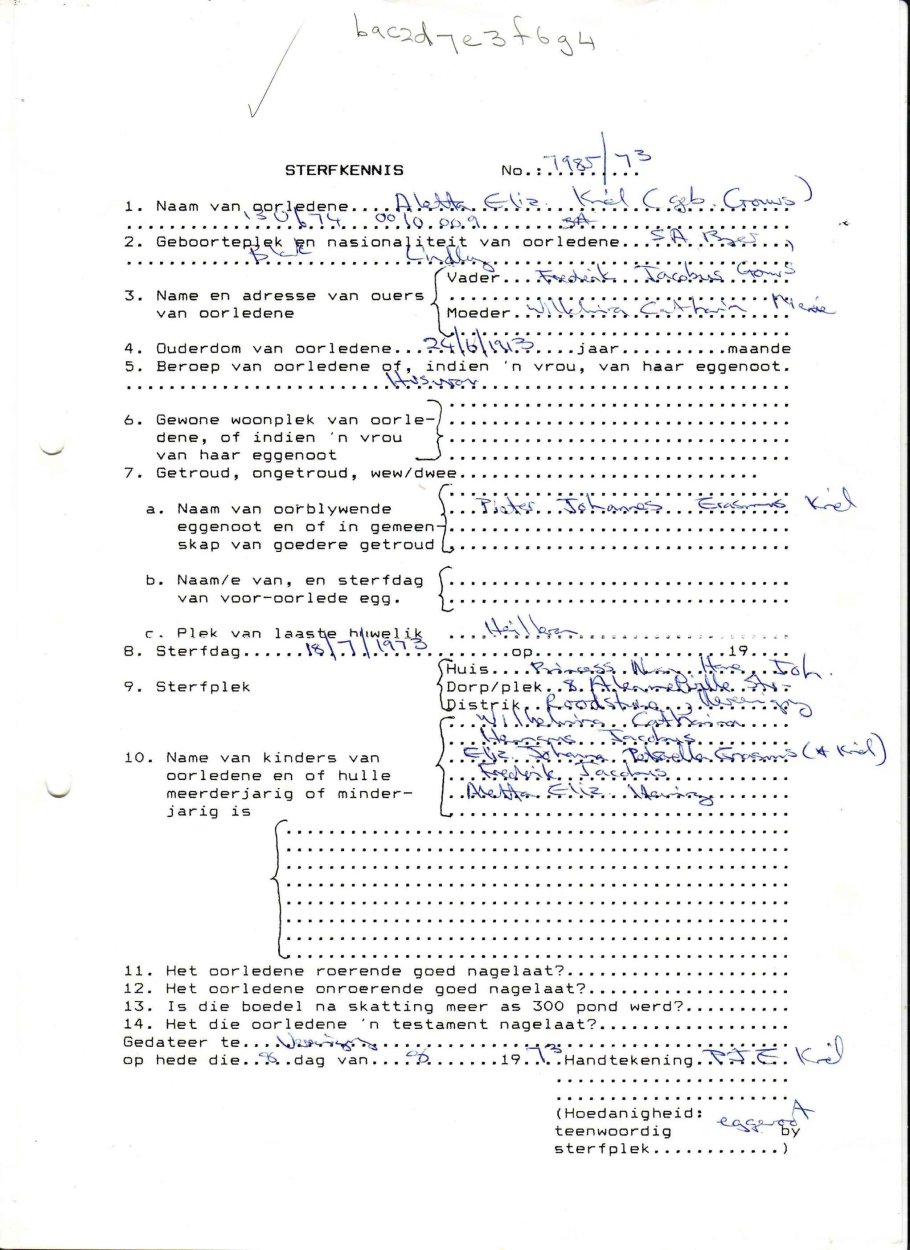 bac2d7e3f6g4
STERFKENNIS No.: 7985/73
1. Naam van oorledene.... Aletta Eliz. Kriel (geb. Gouws)
SA
2. Geboorteplek en nasionaliteit van oorledene... SA
Lindley
Vader... Frederik Jacobus Gouws
3. Name en adresse van ouers
van oorledene
Moeder. Wilhelmina Catharina
4. Ouderdom van oorledene... 24/6/1913 ....jaar..........maande
5. Beroep van oorledene of, indien 'n vrou, van haar eggenoot.
Huisvrou
6. Gewone woonplek van oorle-
dene, of indien 'n vrou
van haar eggenoot
7. Getroud, ongetroud, wew/dwee............................
a. Naam van oorblywende
Pieter Johannes Erasmus Kriel
eggenoot en of in gemeen-
skap van goedere getroud
b. Naam/e van, en sterfdag
van voor-oorlede egg.
c. Plek van laaste huwelik .... Heilbron
8. Sterfdag...... 18/7/1973 ..........op...................19....
Huis.... Princess Joh.
9. Sterfplek Dorp/plek. 8. Str.
Distrik.
Wilhelmina Catharina
Hermanus Jacobus
10. Name van kinders van Eliz. Johanna Petronella Erasmus (x Kriel)
oorledene en of hulle Frederik Jacobus
meerderjarig of minder- Aletta Eliz.
jarig is
11. Het oorledene roerende goed nagelaat?....................
12. Het oorledene onroerende goed nagelaat?..................
13. Is die boedel na skatting meer as 300 pond werd?.........
14. Het die oorledene 'n testament nagelaat?.................
Gedateer te... Vereeniging
op hede die. 8 .dag van... 8 .......19.73 Handtekening. P.J.E. Kriel
(Hoedanigheid: eggenoot
teenwoordig by
sterfplek............)